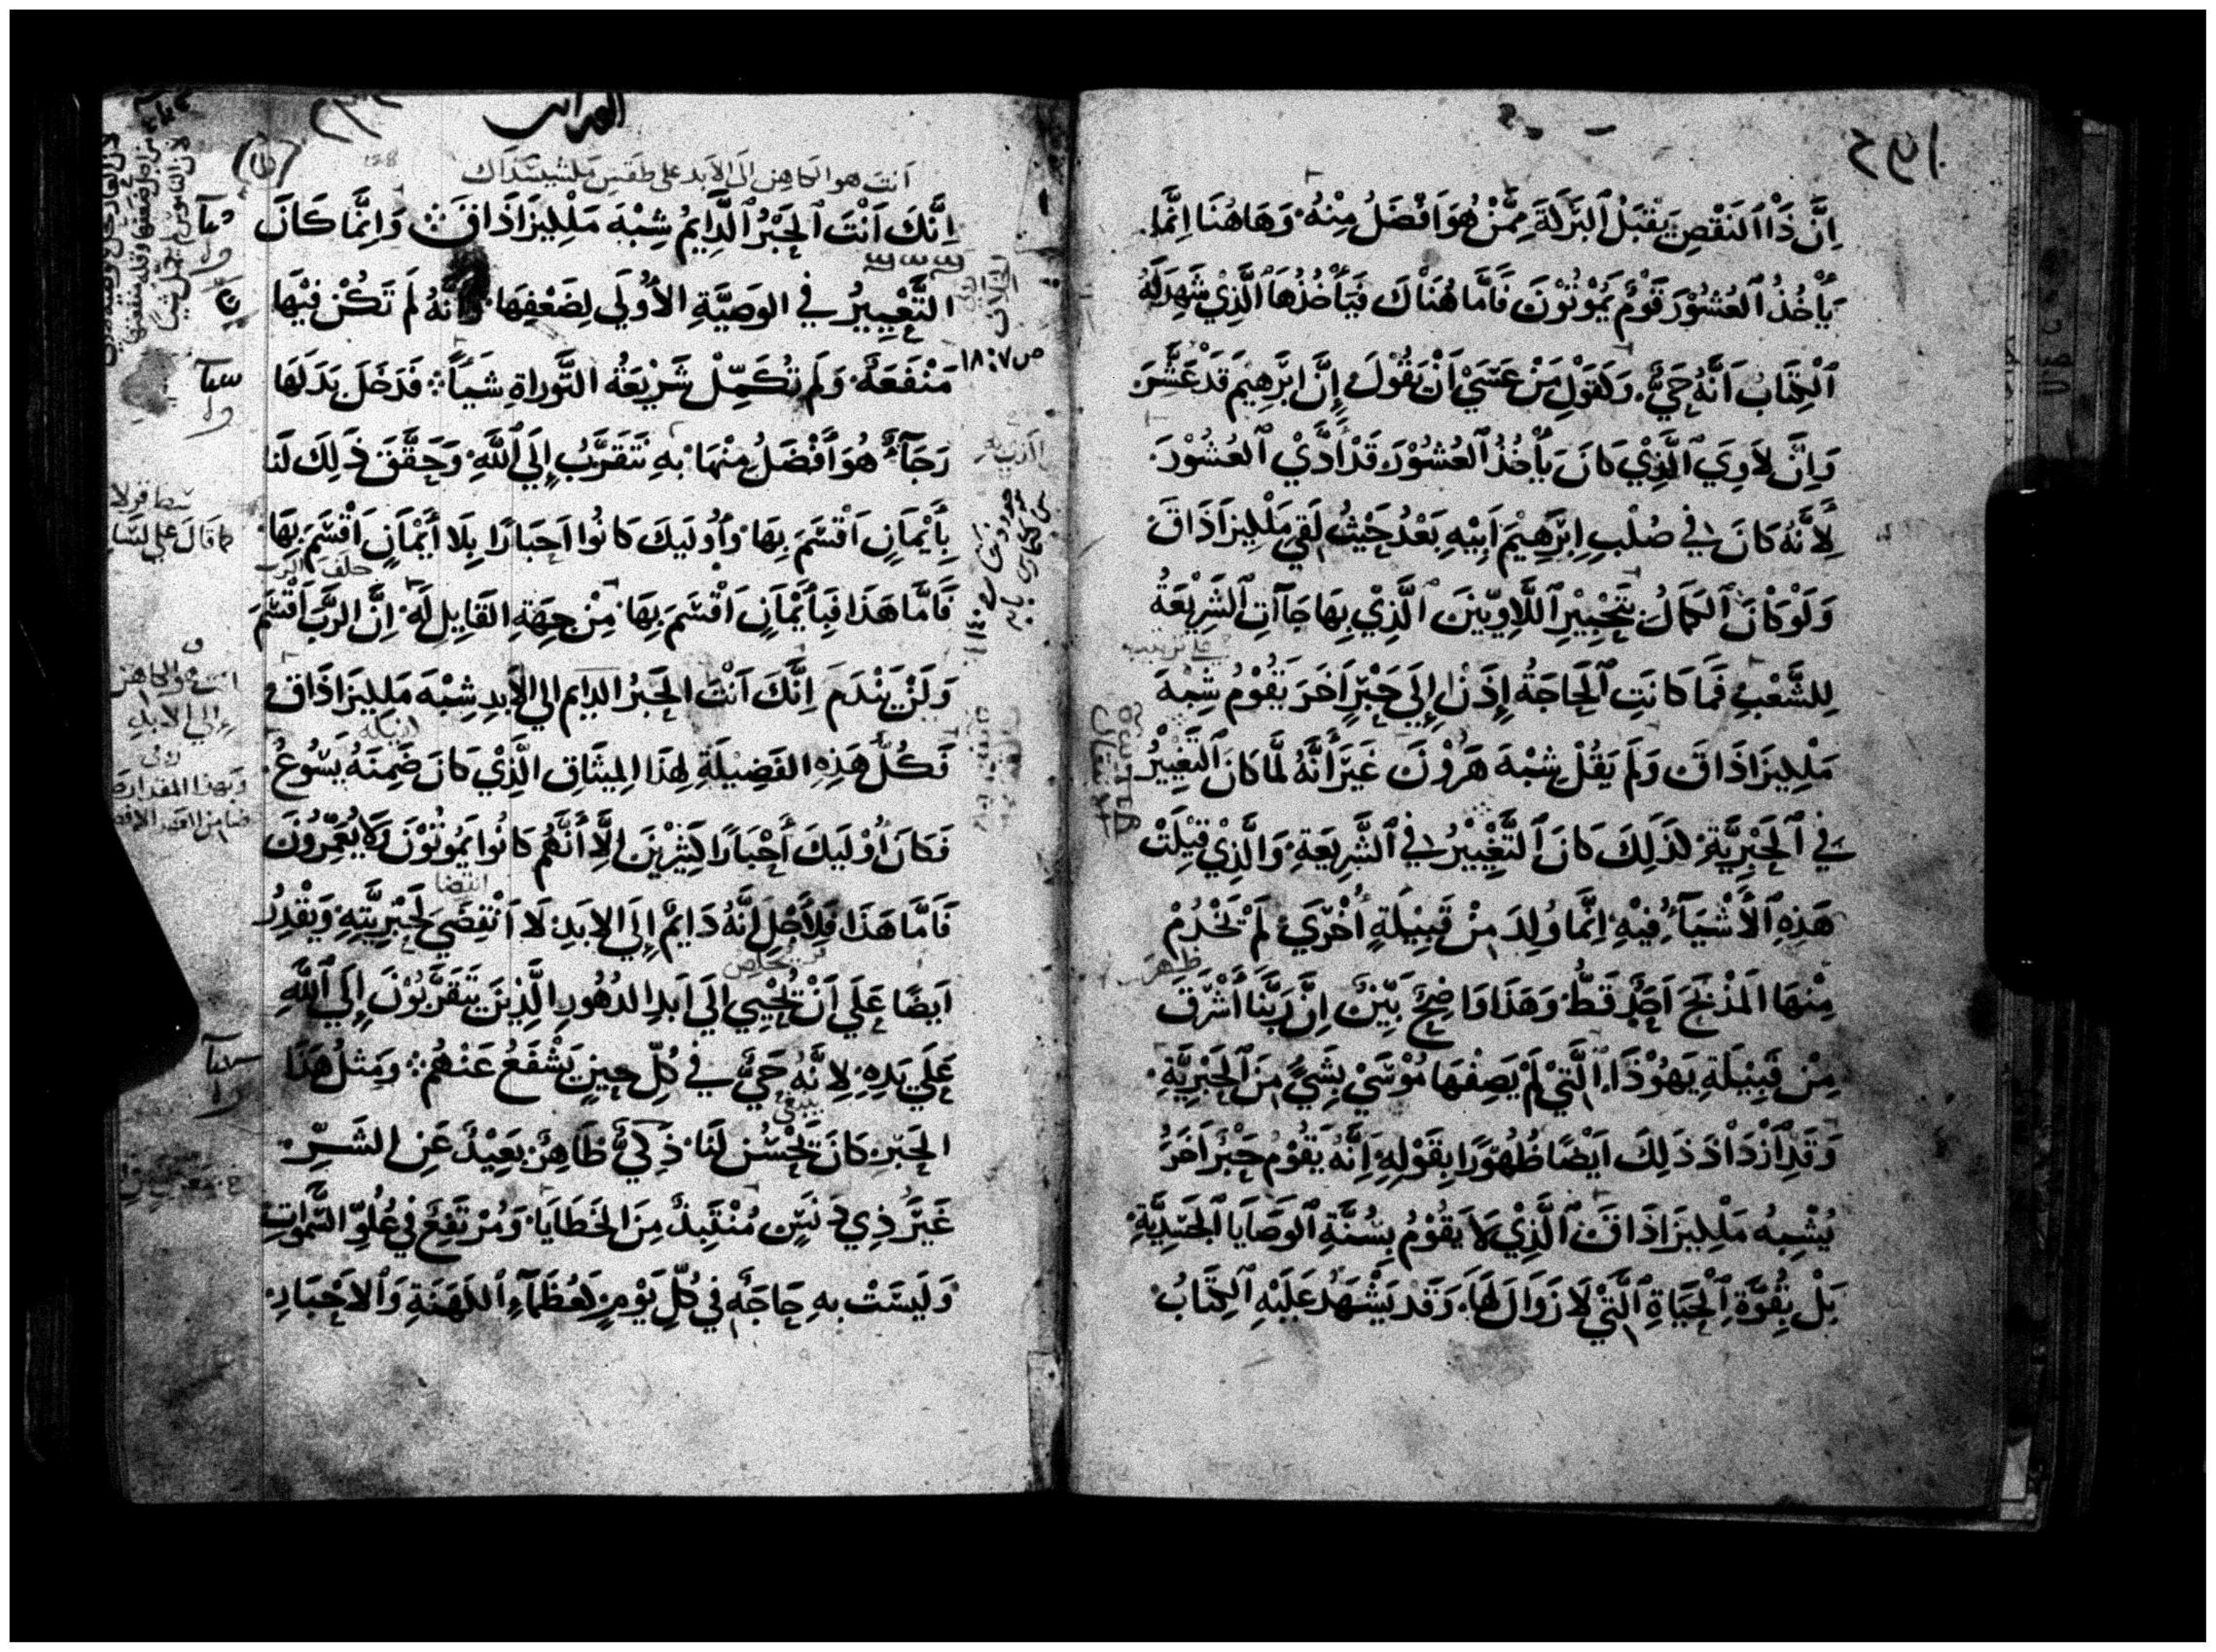 اِنَّ ذَا النَقْصِ يَقْبَلُ البَرَكَةَ مِمَّنْ هُوَ اَفْضَلُ مِنْهُ وَهَاهُنَا اِنَّمَا
يَأْخُذُ العُشُوْرَ قَوْمٌ يَمُوْتُوْنَ فَاَمَّا هُنَاكَ فَيَأْخُذُهَا الَّذِيْ شَهِدَلَهُ
الْكِتَابُ اَنَّهُ حَيٌّ وَكَقَوْلِ مَنْ عَسَيْ اَنْ يَقُوْلَ اِنَّ ابْرَهِيمَ قَدْ عَشَّرَ
وَاِنَّ لاَوِيَ الَّذِيْ كَانَ يَأْخُذُ العُشُوْرَ قَدْ اَدَّيْ العُشُوْرَ
لِأَنَّهُ كَانَ فِيْ صُلْبِ اِبْرَهِيْمَ اَبِيْهِ بَعْدُ حَيْثُ لَقِيَ مَلْكِيزَاذَاقَ
وَلَوْ كَانَ الكَمَالُ بِتَحْبِيْرِ اللَّاوِيّيْنَ الَّذِيْ بِهَا جَآتِ الشَّرِيْعَةُ
لِلشَّعْبِ فَمَا كَانَتِ الحَاجَةُ اِذَنْ اِلَيَ حَبْرٍ اَخَرَ يَقُوْمُ شِبْهَ
مَلْكِيزَاذَاقَ وَلَمْ يَقُلْ شِبْهَ هَرُوْنَ غَيْرَ أَنَّهُ لَمَّا كَانَ التَغْيِيْرُ
فِي الْحَبْرِيَّةِ لذَلِكَ كَانَ التَّغْيِيْرُ فِي الشَّرِيعَةِ وَالَّذِيْ قِيْلَتْ
هَذِهِ الأَشْيَآءُ فِيْهِ اِنَّمَا وُلِدَ مِنْ قَبِيْلَةٍ أُخْرَيْ لَمْ يَخْدُمْ
مِنْهَا المَذْبَحَ اَحَدٌ قَطُّ وَهَذَا وَاضِحٌ بَيِّنٌ اِنَّ رَبَّنَا أَشْرَقَ
مِنْ قَبِيْلَةِ يَهُوْذَا الَّتِيْ لَمْ يَصِفْهَا مُوْسَيْ بِشَيْءٍ مِنَ الْحَبْرِيَّةِ
وَقَدِ اَزْدَاْدَ ذَلِكَ اَيْضًا ظُهُوْرًا بِقَوْلِهِ اِنَّهُ يَقُوْمُ حَبْرٌ اَخَرُ
يُشْبِهُ مَلْكِيزَاذَاقَ الَّذِيْ لَا يَقُوْمُ بِسُنَّةِ الوَصَايَا الجَسَدِيَّةِ
بَلْ بِقُوَّةِ الْحَيَاةِ الَّتِيْ لَا زَوَالَ لَهَا وَقَدْ يَشْهَدُ عَلَيْهِ الكِتَابُ
انت هو الكاهن الى الابد على طقس ملشيسداك
اِنَّكَ اَنْتَ الحَبْرُ الدَّايِمُ شِبْهَ مَلْكِيزَاذَاقَ وَاِنَّمَا كَانَ
التَّغْيِيرُ فِي الوَصِيَّةِ الأُوْلَي لِضَعْفِهَا وَأَنَّهُ لَمْ تَكُنْ فِيْهَا
ص ٧ : ١٨
مَنْفَعَةٌ وَلَمْ تُكَمِّلْ شَرِيْعَةُ التَّوْرَاةِ شَيْاً فَدَخَلَ بَدَلَهَا
رَجَآءٌ هُوَ أَفْضَلُ مِنْهَا بِهِ نَتَقَرَّبُ اِلَي اللهِ وَحَقَّقَ ذَلِكَ لَنَا
بِأَيْمَانٍ اَقْسَمَ بِهَا وَأُولَيِكَ كَانُوا اَحبَارًا بِلَا أَيْمَانٍ اَقْسَمَ بِهَا
حلف الرب
فَأَمَّا هَذَا فَبِأَيْمَانٍ اَقْسَمَ بِهَا مِنْ جِهَةِ القَايِلِ لَهُ اِنَّ الرَّبَّ اَقْسَمَ
وَلَنْ يَنْدَمَ اِنَّكَ اَنْتَ الحَبْرُ الدايم الي الأَبدِ شِبْهَ مَلكِيزَاذَاقَ
فَكُلُّ هَذِهِ الفَضِيْلَةِ لِهَذَا المِيثَاقِ الَّذِيْ كَانَ ضَمِنَهُ يَسُوعُ
فَكَانَ أُوْلَيكَ أَحْبَارًا كَثِيْرِيْنَ لِأَنَّهُم كَانُوا يَمُوتُوْنَ وَلَا يُعَمِّرُوْنَ
فَاَمَّا هَذَا فَلِأَجْلِ اَنَّهُ دَايمٌ اِلَي الابَدِ لَا اَنْقِضَيَ لِحَبْرِيَّتِهِ وَيَقْدِرُ
اَيضًا عَلَي اَنْ يُحْيِي الَي اَبدِ الدُهُورِ الَّذِيْنَ يَتَقَرَّبُوْنَ اِلَي اللهِ
عَلَي يَدِهِ لِاَنَّهُ حَيٌّ فِي كُلِّ حِينٍ يَشْفَعُ عَنْهُمْ وَمِثلُ هَذَا
الحَبْرِ كَانَ يَحْسُنُ لَنَا ذَكِيٌّ ظَاهِرٌ بَعِيْدٌ عَنِ الشَرِّ
غَيْرَ ذِي دَنَسٍ مُنْتَبِذٌ مِنَ الخَطَايَا وَمُرْتَفِعٌ فِي عُلُوِّ السَّمَوَاتِ
وَلَيسَتْ بهِ حَاجَةٌ فِي كُلِّ يَوْمٍ كَعُظَمَآءِ الكَهَنَةِ وَالأَحْبَارِ
كما قال على لسان
انت هو الكاهن
الي الابد
وبهذا المقدار